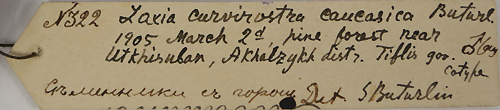 №322 Loxia curvirostra caucasica Buturl.
1905 March 2d, pine forest near
Utkhisuban, Akhalzykh distr. Tiflis gov.
cotype
съ горош Det. S Buturlin